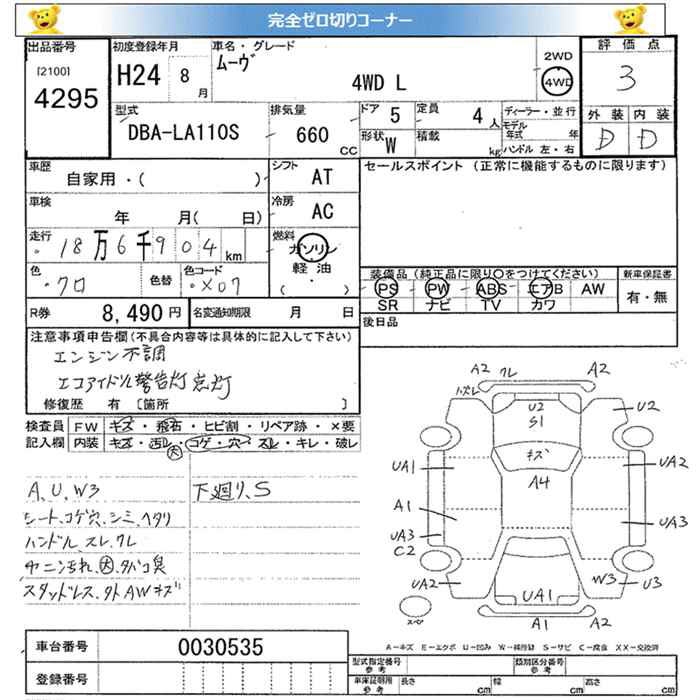 完全ゼロ切りコーナー
出品番号
[2100]
4295
初度登録年月
H24 8月
車名・グレード
ムーヴ
4WD L
2WD
4WD
評価点
3
外装 内装
D D
型式
DBA-LA110S
排気量
660 CC
ドア 5
定員 4人
形状 W
積載 kg
ディーラー・並行
モデル年式 年
ハンドル 左・右
車歴
自家用・( )
シフト AT
セールスポイント (正常に機能するものに限ります)
車検
年 月( 日)
冷房 AC
走行
18万6千904km
燃料
ガソリン
軽油
( ・ )
色
クロ
色替
色コード
X07
装備品(純正品に限り○をつけてください)
PS PW ABS エアB AW
SR ナビ TV カワ
新車保証書
有・無
R券 8,490円
名変通知期限 月 日
後日品
注意事項申告欄(不具合内容等は具体的に記入して下さい)
エンジン不調
エコアイドル警告灯点灯
修復歴 有〔箇所 〕
検査員記入欄
FW キズ・飛石・ヒビ割・リペア跡・×要
内装 キズ・汚レ・コゲ・穴・スレ・キレ・破レ
大
A、U、W3
下廻り、S
シート、コゲ穴、シミ、ヘタリ
ハンドル、スレ、クレ
ヤニ汚れ、大、タバコ臭
スタッドレス、タトAWキズ
A2 クレ A2
ハズレ
U2 S1
U2
キズ
UA1
A4
UA2
A1
UA3
UA3
C2
UA2
W3
U3
UA1
A1 A2
スペア
A-キズ E-エクボ U-凹み W-補修跡 S-サビ C-腐食 XX-交換済
車台番号 0030535
登録番号
型式指定番号 参考
類別区分番号 参考
車庫証明用 参考
長さ cm
幅 cm
高さ cm